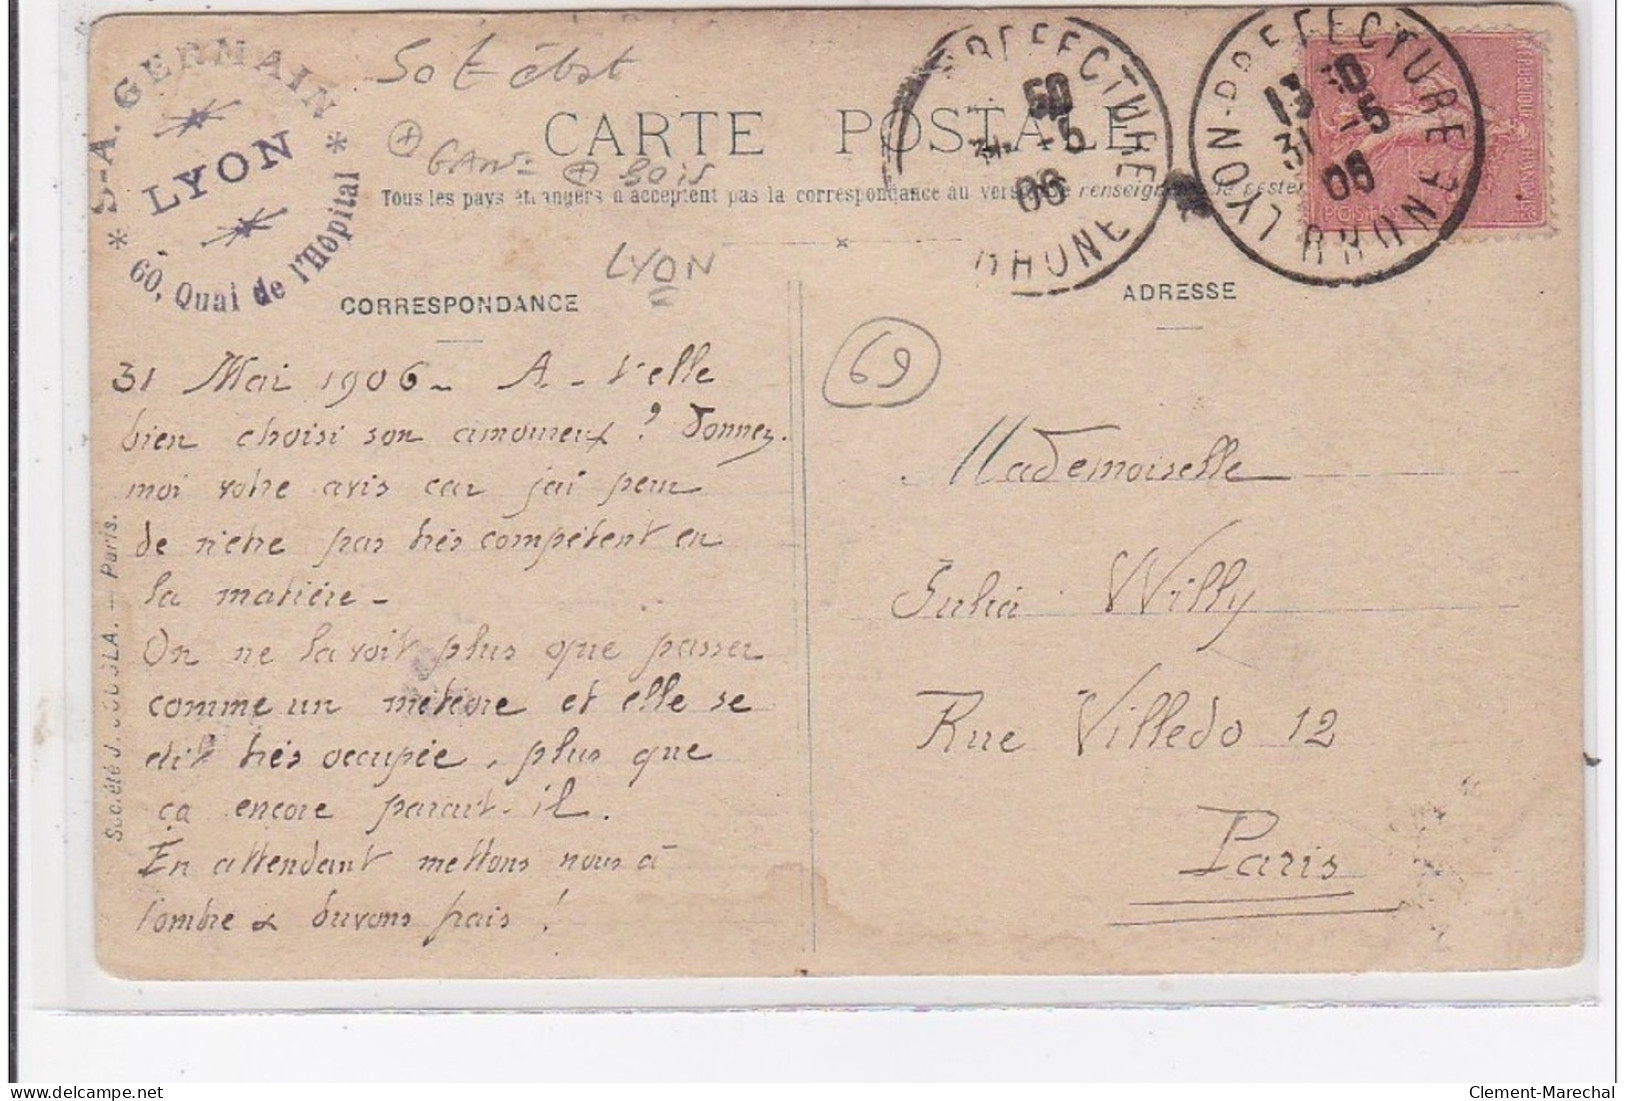 S-A. GERMAIN
LYON
* 60, Quai de l'Hôpital *
CARTE POSTALE
Tous les pays étrangers n'acceptent pas la correspondance au verso, se renseigner à la poste
LYON
CORRESPONDANCE
31 Mai 1906 - A-t'elle
bien choisi son amoureux ? Donnez-
moi votre avis car j'ai peur
de n'être pas très compétent en
la matière -
On ne la voit plus que passer
comme un météore et elle se
dit très occupée, plus que
ça encore parait-il.
En attendant mettons nous à
l'ombre & buvons frais !
Société J. Paris.
PREFECTURE
31 -5
06
RHONE
LYON-PREFECTURE
13 30
31 -5
06
RHONE
POSTES
ADRESSE
69
Mademoiselle
Julia Willy
Rue Villedo 12
Paris
www.delcampe.net
Clement-Marechal